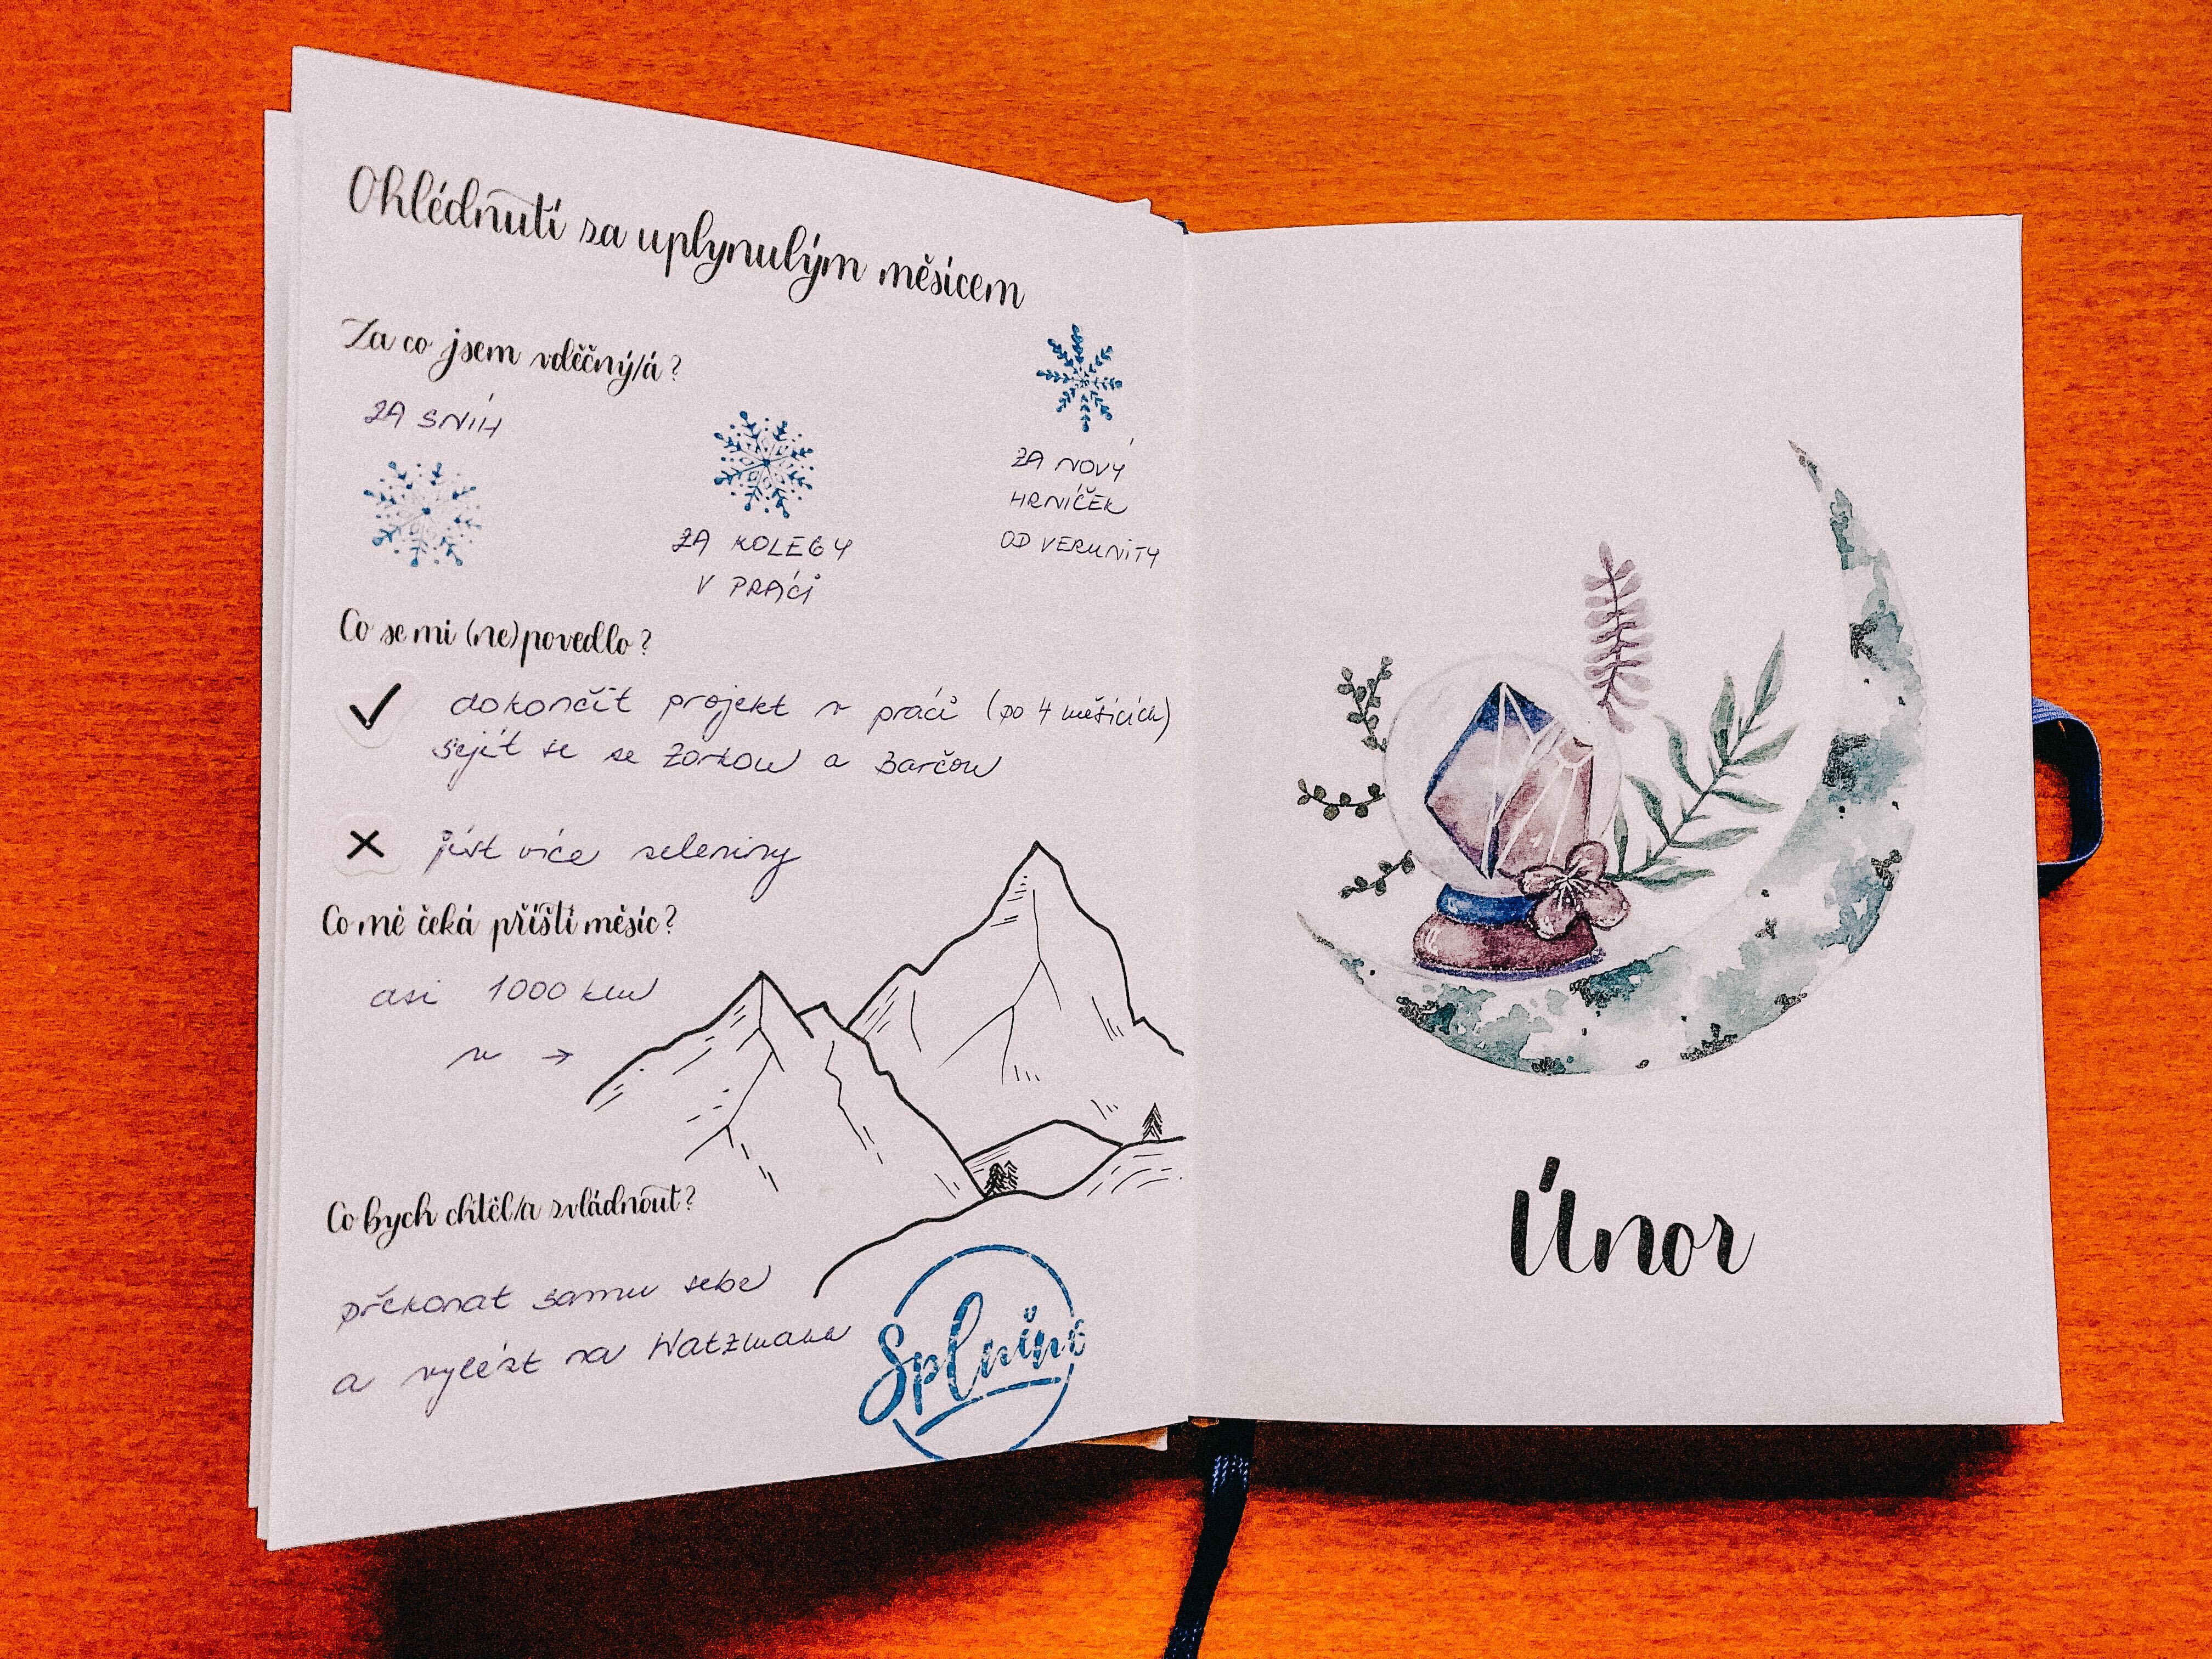 Ohlédnutí za uplynulým měsícem
Za co jsem vděčný/á?
ZA SNÍH
ZA KOLEGY
V PRÁCI
ZA NOVÝ
HRNÍČEK
OD VERUNITY
Co se mi (ne)povedlo?
dokončit projekt v práci (po 4 měsících)
sejít se se Zorkou a Barčou
jíst více zeleniny
Co mě čeká příští měsíc?
asi 1000 km
v →
Co bych chtěl/a zvládnout?
překonat samu sebe
a vylézt na Watzmann
Splněno
Únor